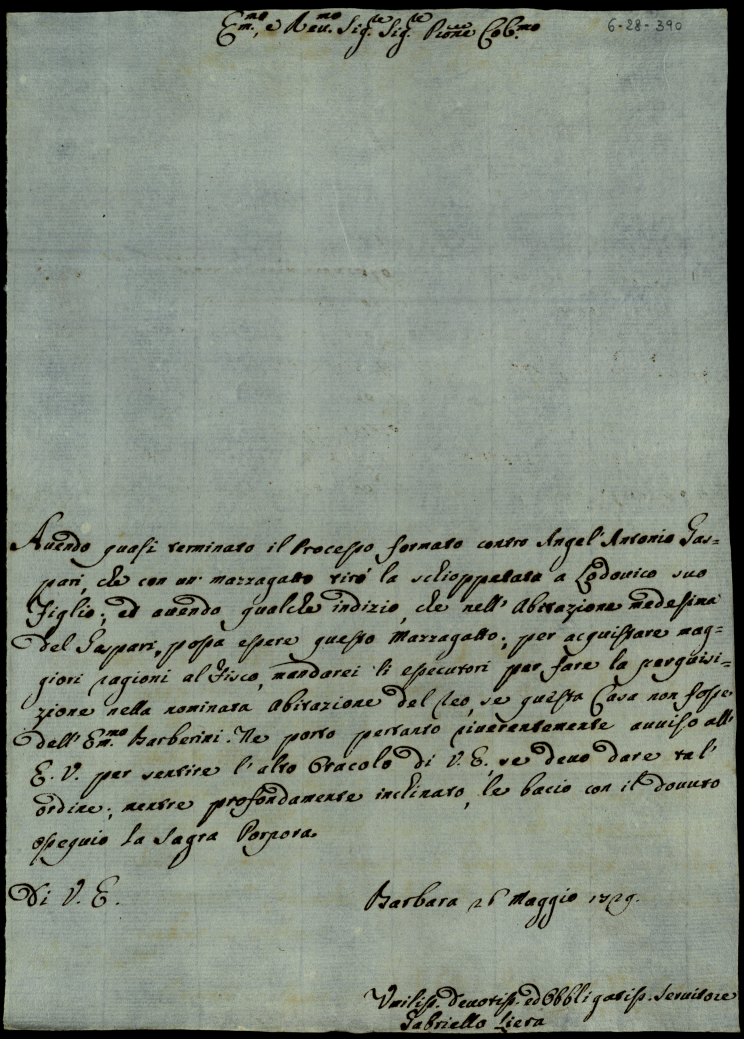 6-28-390
Em.mo, e Reu.mo Sig.re Sig.re P͞rone Colmo
Auendo quasi terminato il Processo formato contro Angel'Antonio Gas=
pari, che con un' mazzagatto tirò la schioppettata a Lodouico suo
Figlio; ed auendo qualche indizio, che nell'Abitazione medesima
del Gaspari, possa essere questo Mazzagatto; per acquistare mag=
giori ragioni al Fisco, mandarei li esecutori per fare la perquisi=
zione nella nominata Abitazione del reo, se questa Casa non fosse
dell'Em.mo Barberini. Ne porto pertanto riuerentemente auuiso all'
E. V. per sentire l'alto Oracolo di V. E, se deuo dare tal'
ordine; mentre profondamente inclinato, le bacio con il douuto
ossequio la Sagra Porpora.
Di V. E.
Barbara 26 Maggio 1729.
Vmiliss. Deuotiss. ed Obbligatiss. Seruitore
Gabriello Liera